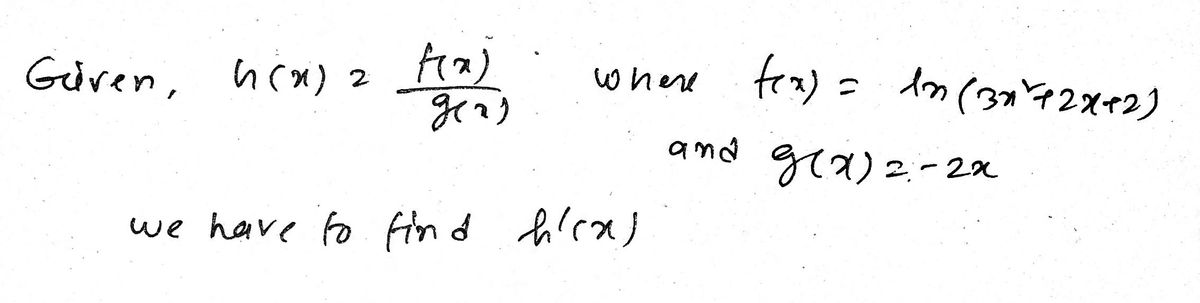 Given, h(x) = f(x)/g(x) where f(x) = ln(3x²+2x+2)
and g(x) = -2x
we have to find h'(x)